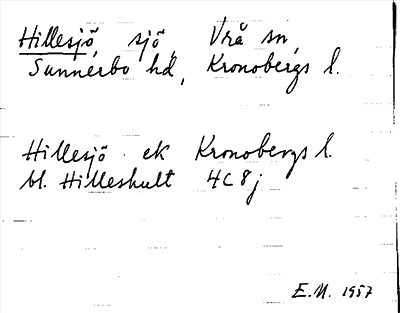 Hillesjö, sjö, Vrå sn,
Sunnerbo hd, Kronobergs l.
Hillesjö ek Kronobergs l.
bl. Hilleshult 4C8j
E.M. 1957